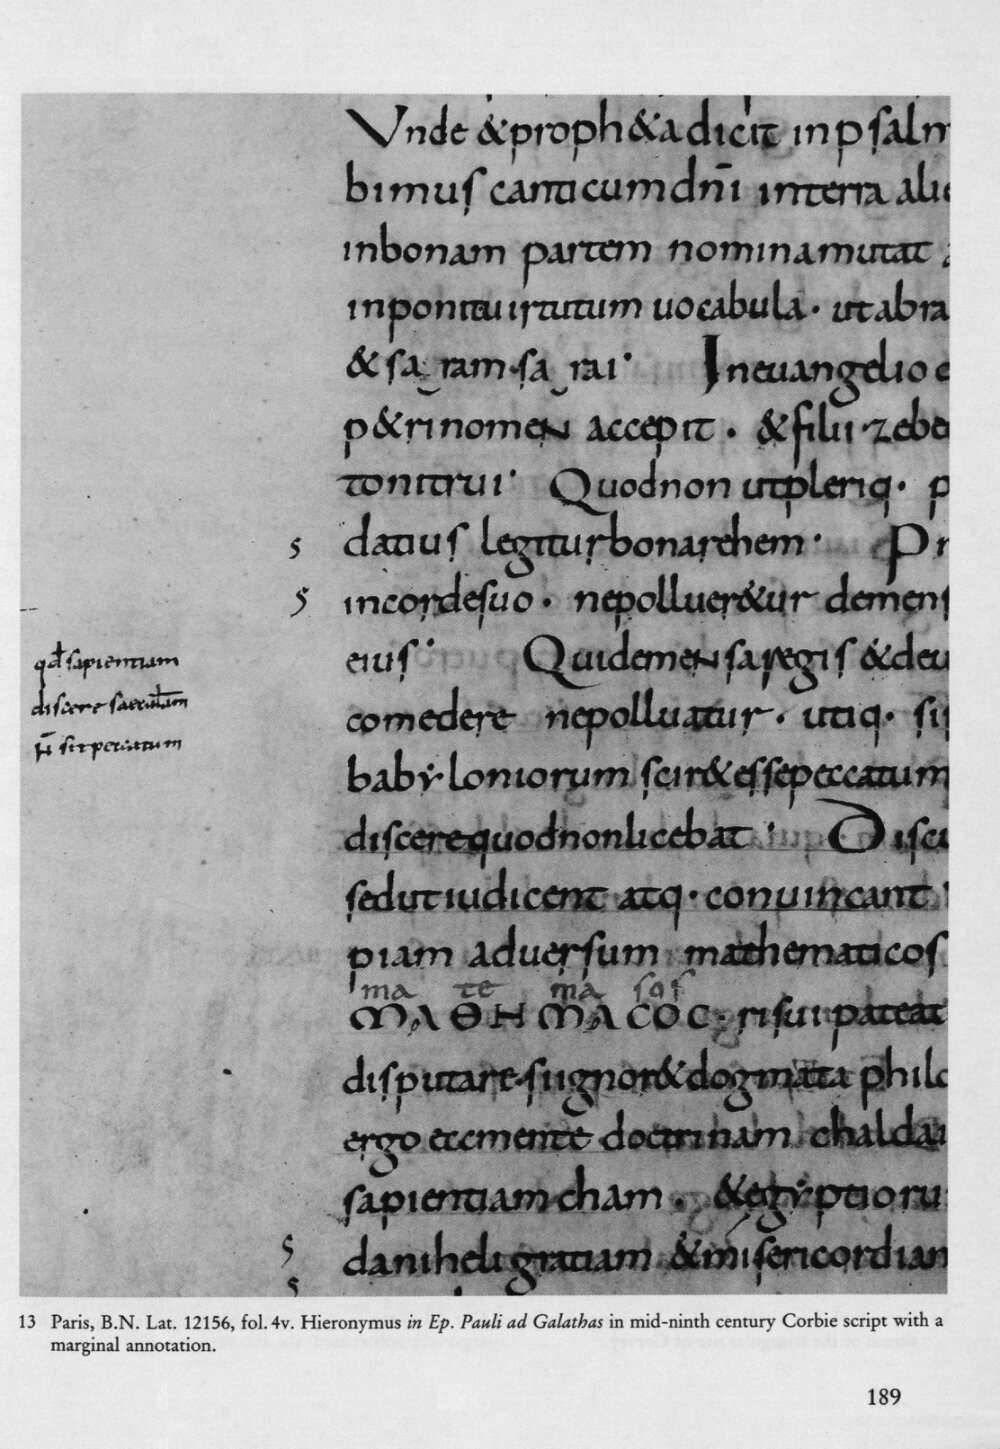 Vnde & proph&a dicit in psalm
bimus canticum dnī in terra alie
in bonam partem nomina mutat a
inponit uirtutum uocabula · ut abra
& sa ram · sa rai · In euangelio e
p&ri nomen accepit · & filii · zebe
tonitrui · Quod non ut pleriq· p
5 datius legitur bonarehem · Pr
5 in corde suo · ne polluer&ur de mens
eius · Qui de mensa regis & de u
qđ sapientiam
discere saecularem
n̄ sit peccatum
comedere ne polluatur · utiq· si
babyloniorum scir& esse peccatum
discere quod non licebat · Disc
sed ut iudicent atq· conuincant ·
piam aduersum mathematicos
ma te ma sos
ΜΑΘΗΜΑCOC · risui pateat
disputare · si ignor& dogmata philo
ergo et mente doctrinam chaldai
sapientiam cham · & egyptioru
5 daniheli gratiam & misericordiam
5
13 Paris, B.N. Lat. 12156, fol. 4v. Hieronymus in Ep. Pauli ad Galathas in mid-ninth century Corbie script with a
marginal annotation.
189